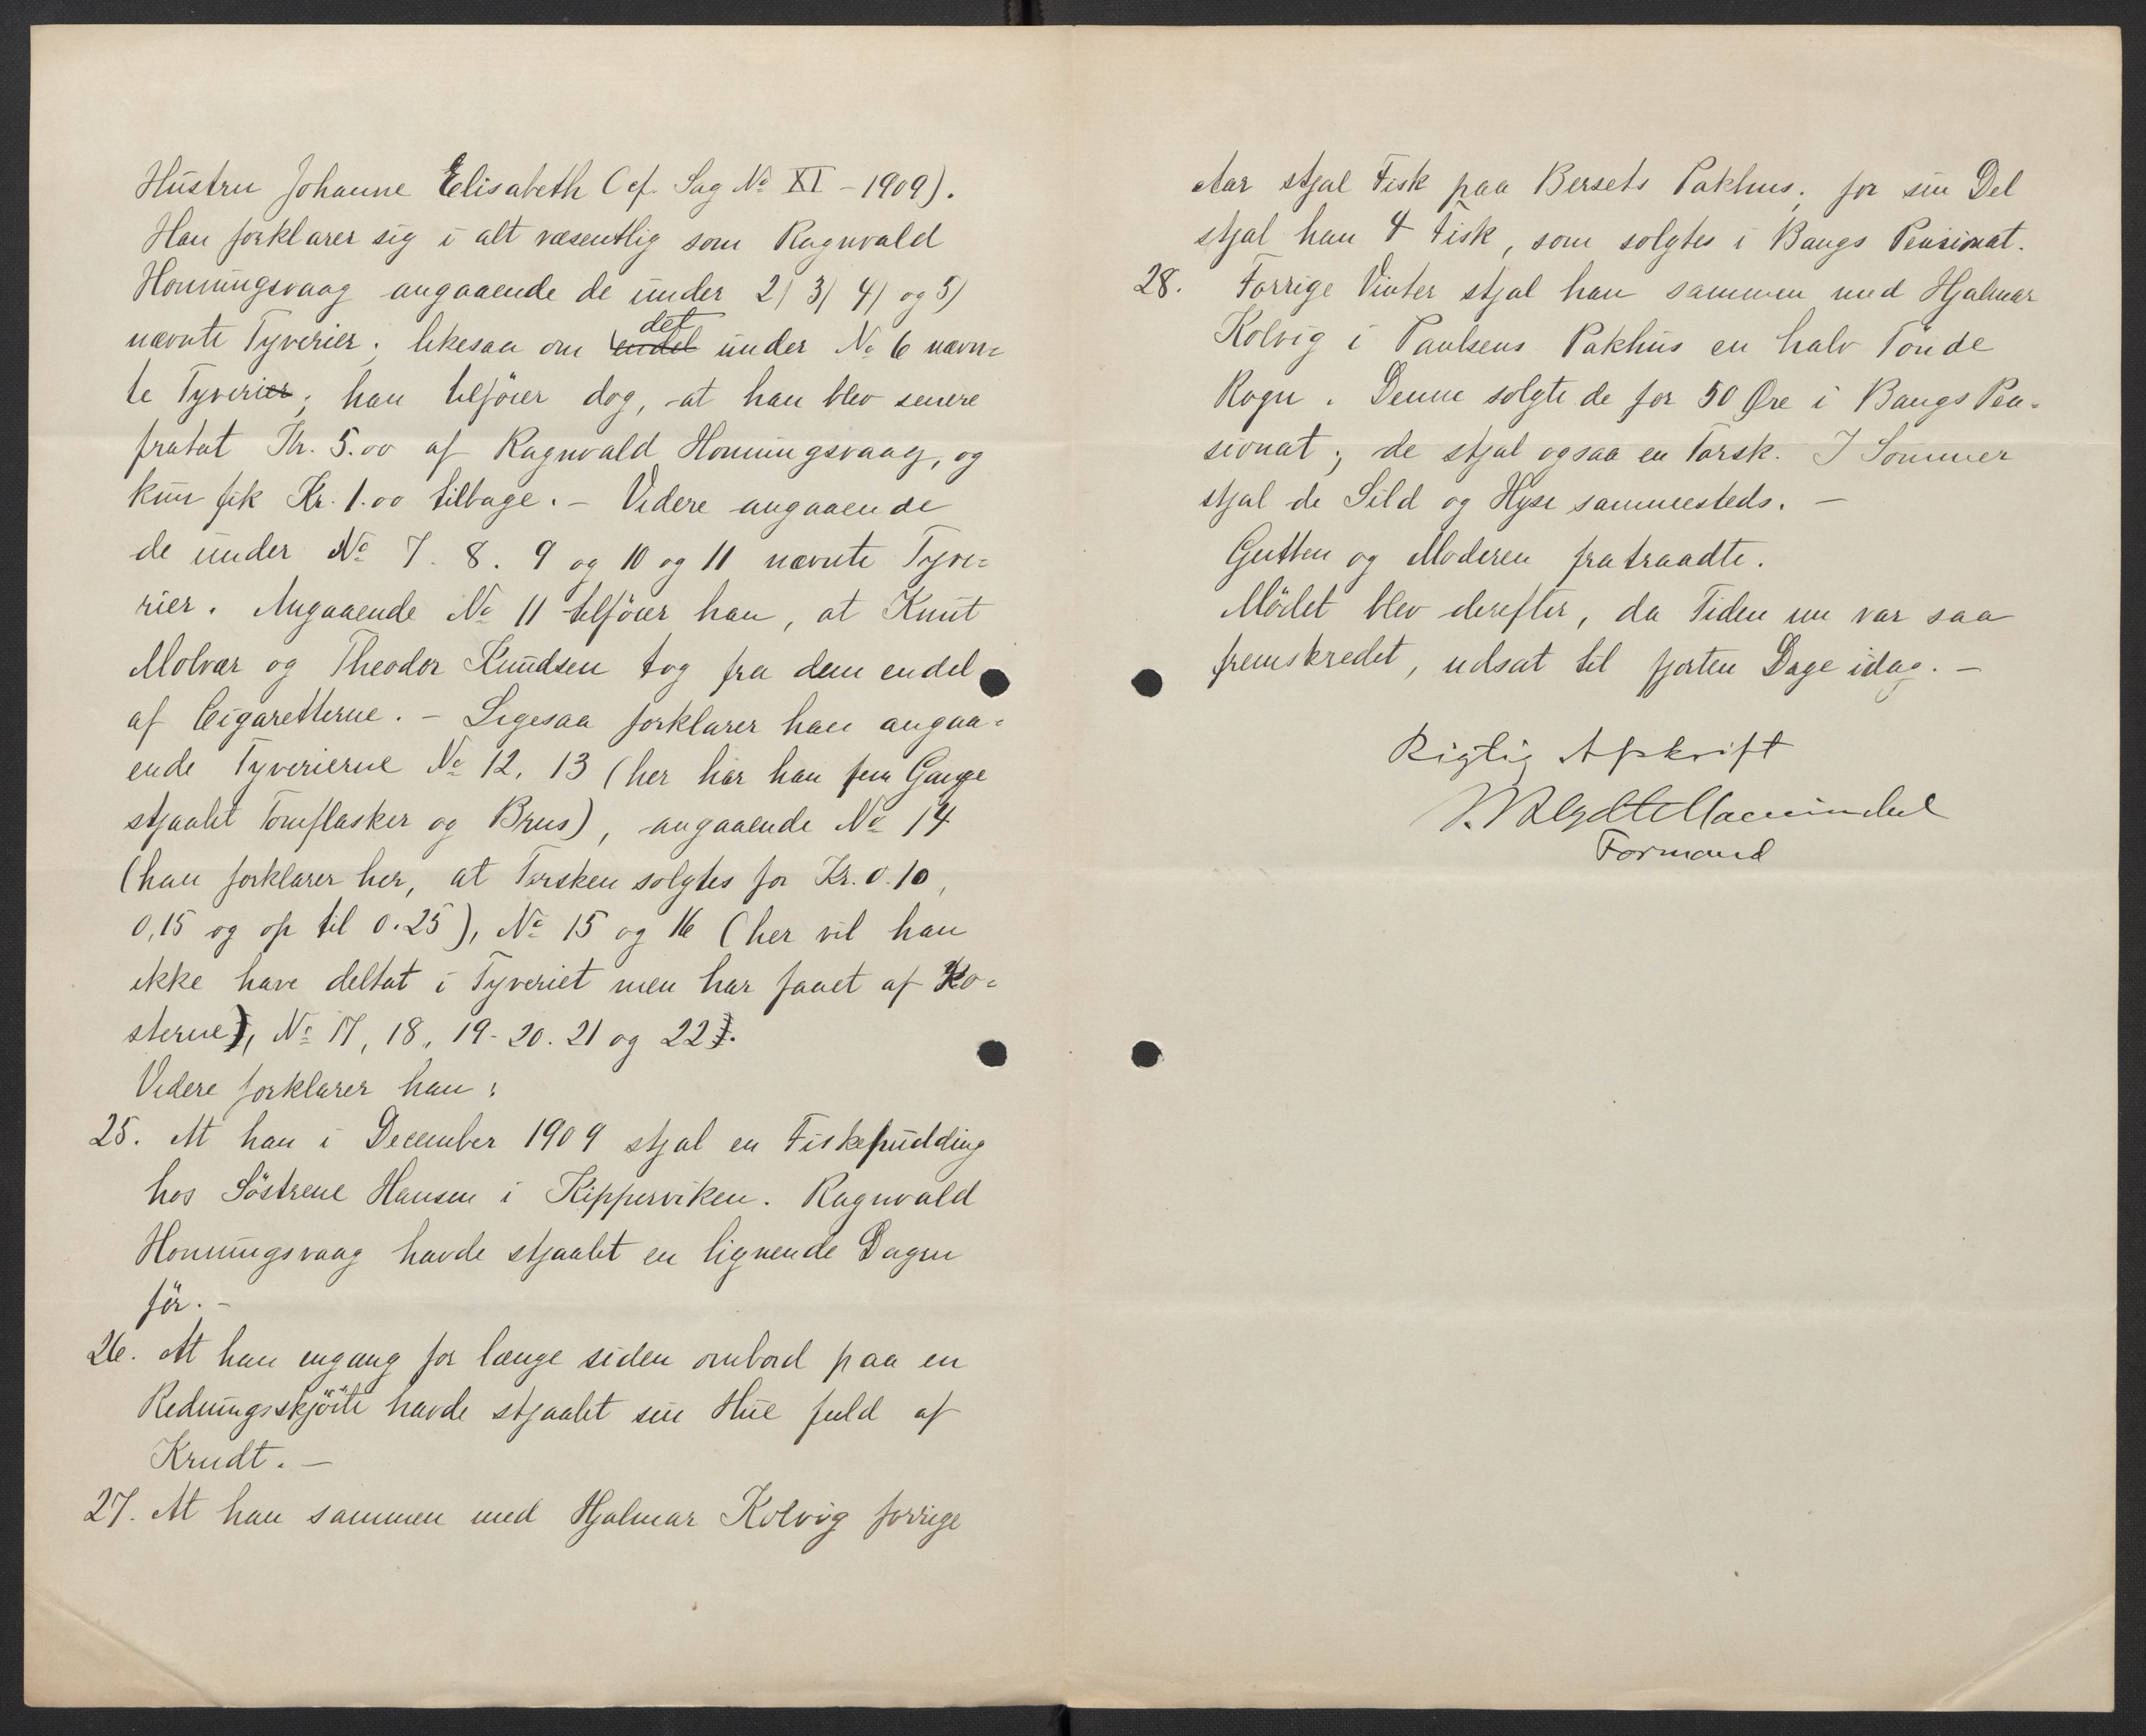 Hustru Johanne Elisabeth (cf. Sag No XI - 1909).
Han forklarer sig i alt væsentlig som Ragnvald
Honningsvaag angaaende de under 2) 3) 4) og 5)
nævnte Tyverier; likesaa om endel det under No 6 nævn=
te Tyverier; han tilföier dog, at han blev senere
fratat Kr. 5.00 af Ragnvald Honningsvaag, og
kun fik Kr. 1.00 tilbage. - Videre angaaende
de under No 7. 8. 9 og 10 og 11 nævnte Tyve=
rier. Angaaende No 11 tilföier han, at Knut
Molvær og Theodor Knudsen tog fra dem endel
af Cigaretterne. - Ligesaa forklarer han angaa=
ende Tyverierne No 12, 13 (her har han fem Gange
stjaalet Tomflasker og Brus), angaaende No 14
(han forklarer her, at Torsken solgtes for Kr. 0.10,
0,15 og op til 0.25), No 15 og 16 (her vil han
ikke have deltat i Tyveriet men har faaet af Ko=
sterne), No 17, 18, 19- 20. 21 og 22).
Videre forklarer han:
25. At han i December 1909 stjal en Fiskepudding
hos Söstrene Hansen i Kipperviken. Ragnvald
Honningsvaag havde stjaalet en lignende Dagen
för. -
26. At han engang for længe siden ombord paa en
Redningsskjöite havde stjaalet sin Hue fuld af
Krudt. -
27. At han sammen med Hjalmar Kolvig forrige
Aar stjal Fisk paa Bersets Pakhus; for sin Del
stjal han 4 Fisk, som solgtes i Bangs Pensionat.
28. Forrige Vinter stjal han sammen med Hjalmar
Kolvig i Paulsens Pakhus en halv Tönde
Rogn. Denne solgte de for 50 Øre i Bangs Pen=
sionat; de stjal ogsaa en Torsk. I Sommer
stjal de Sild og Hyse sammesteds. -
Gutten og Moderen fratraadte.
Mödet blev derefter, da Tiden nu var saa
fremskredet, udsat til fjorten Dage idag. -
Rigtig Afskrift
Formand